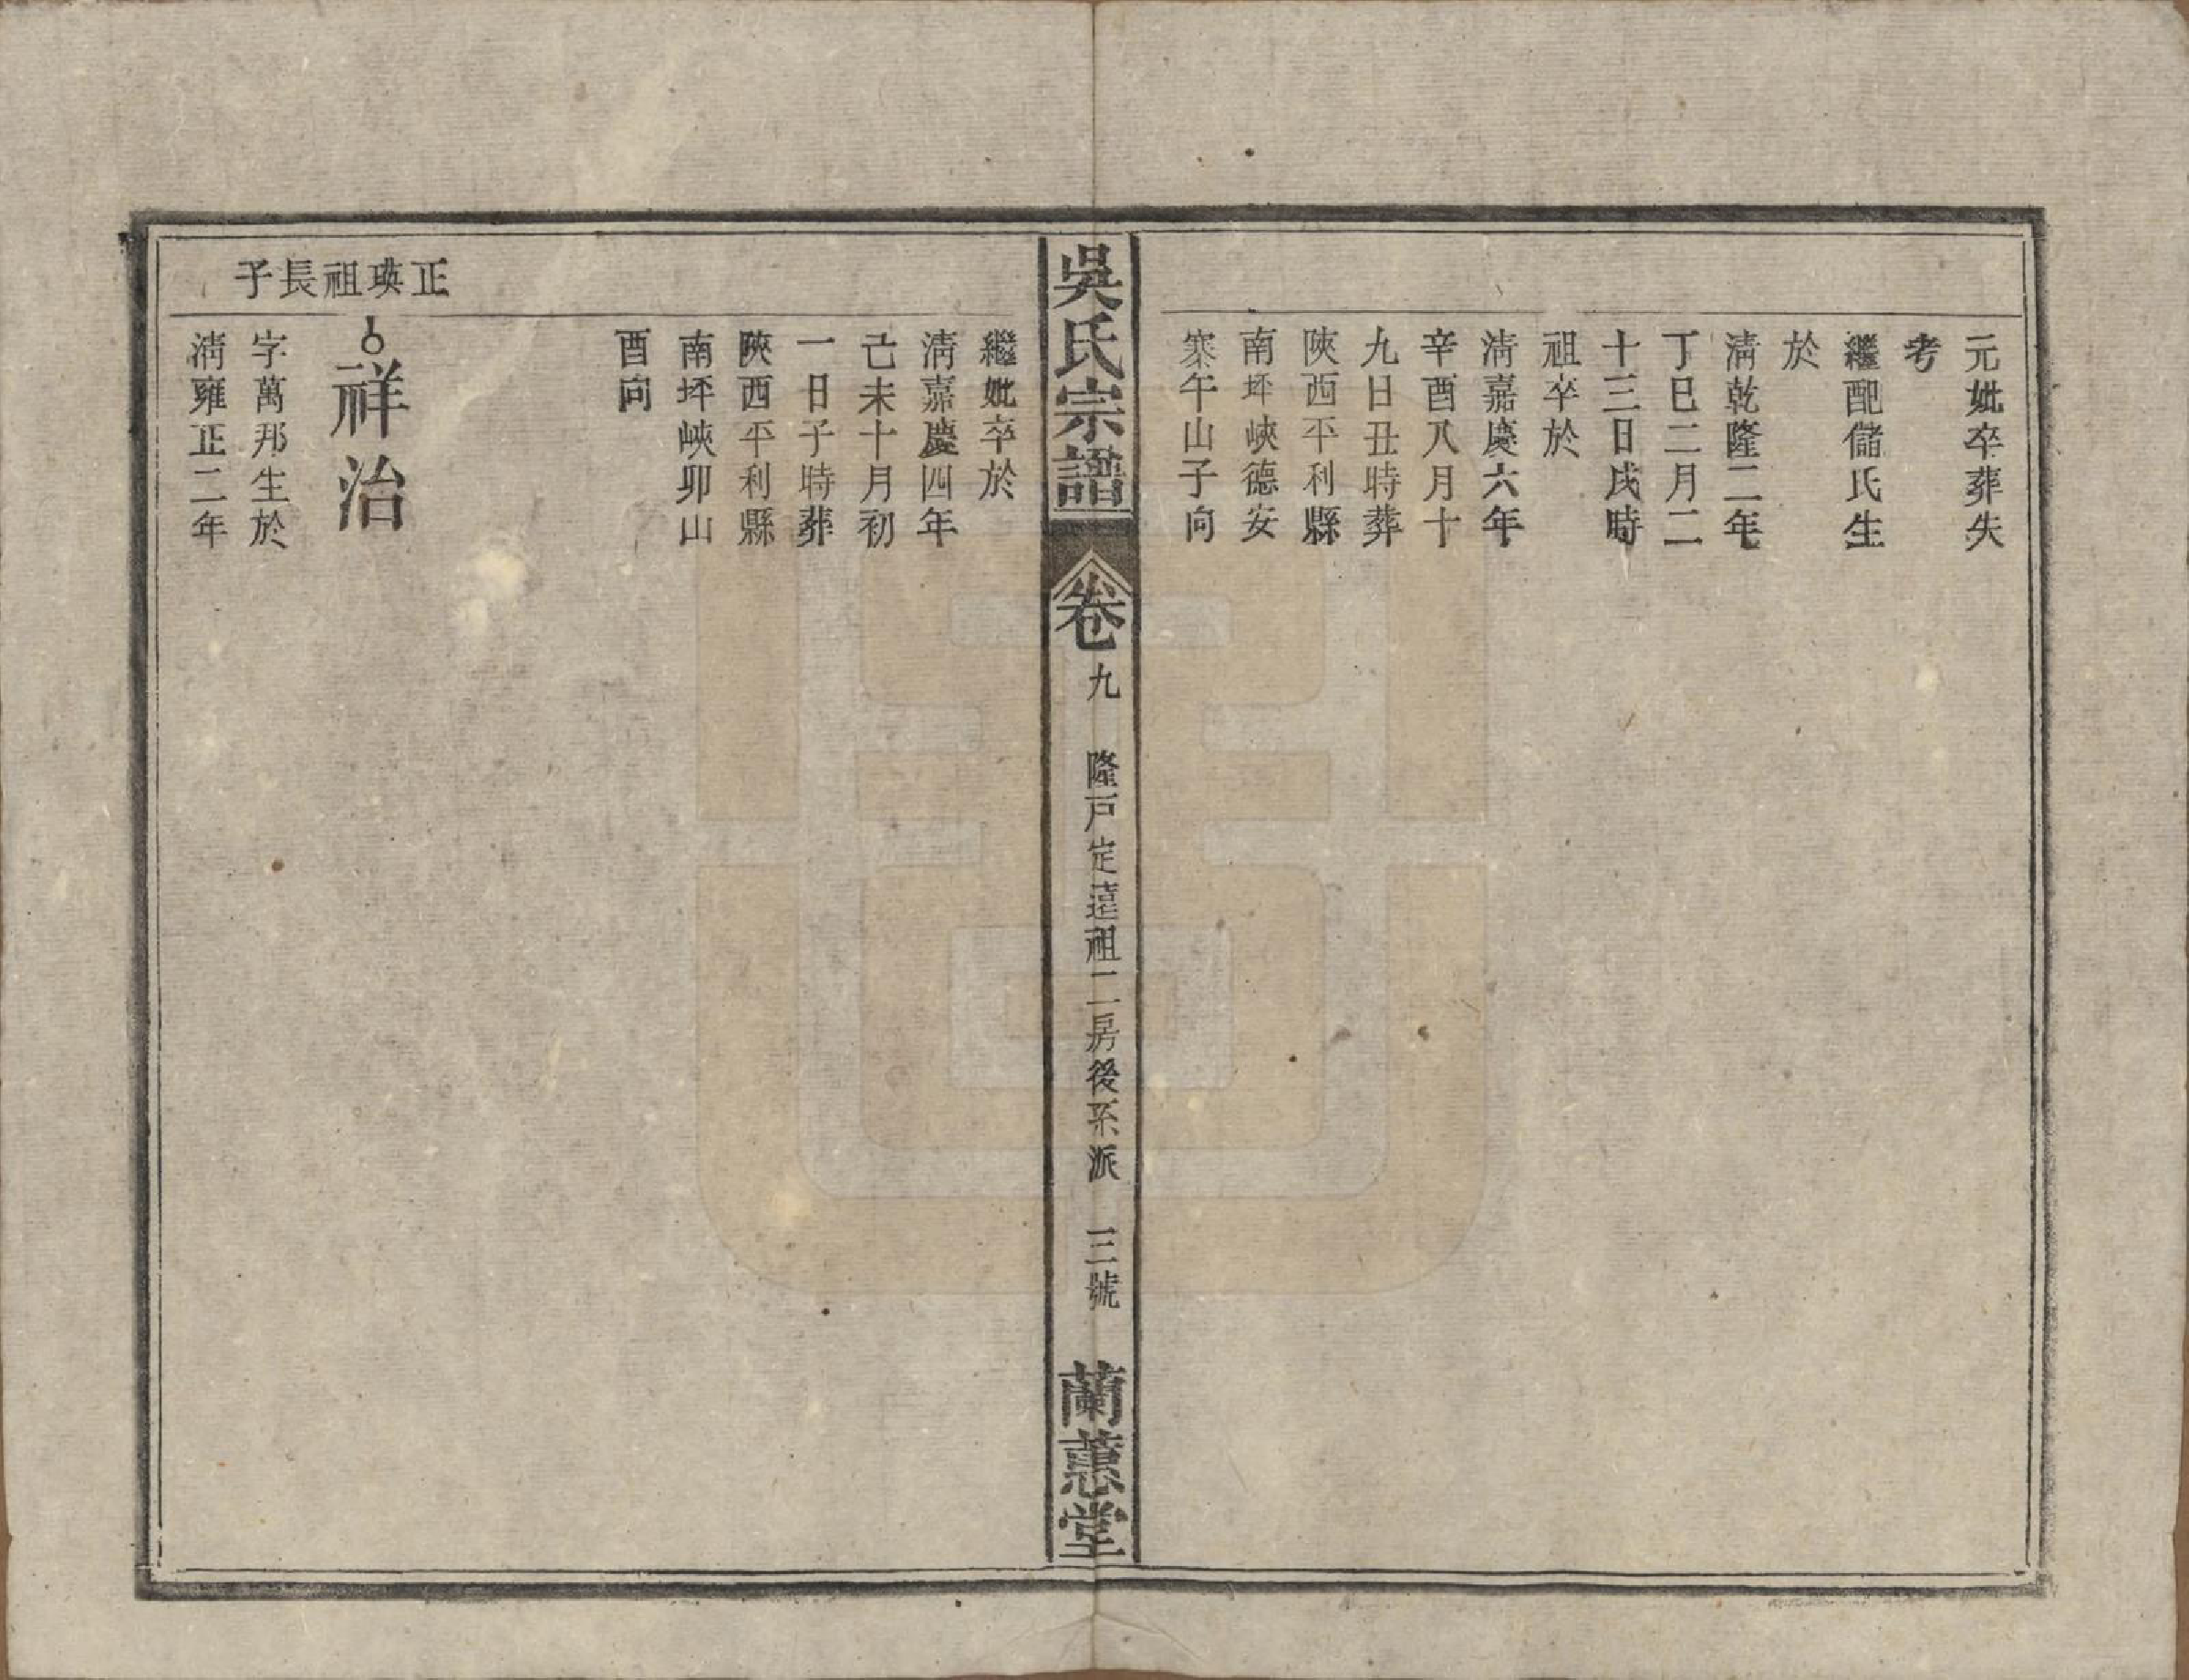 元妣卒葬失
考
繼配儲氏生
於
清乾隆二年
丁巳二月二
十三日戌時
祖卒於
清嘉慶六年
辛酉八月十
九日丑時葬
陝西平利縣
南坪峽德安
寨午山子向
吳氏宗譜
卷九
隆戸定遠祖二房後系派
三號
蘭蕙堂
繼妣卒於
清嘉慶四年
己未十月初
一日子時葬
陝西平利縣
南坪峽卯山
酉向
正瑛祖長子
祥治
字萬邦生於
清雍正二年